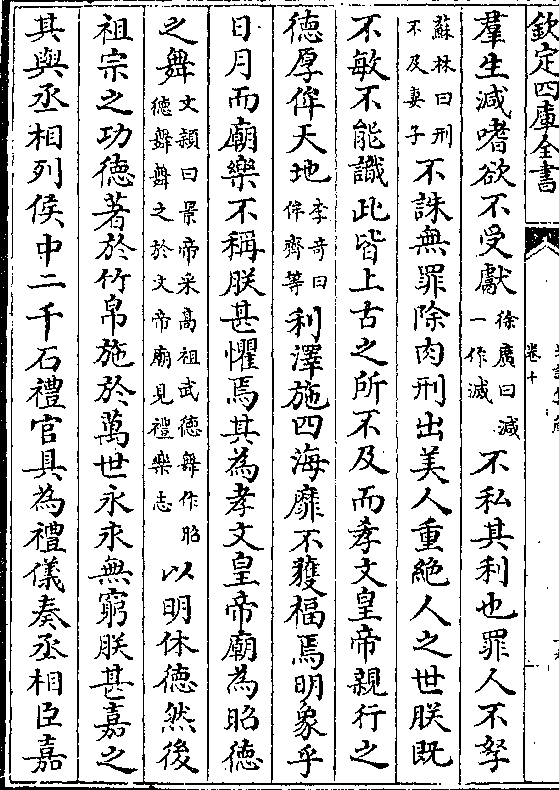 欽定四庫全書
卷十
羣生減嗜欲不受獻徐廣曰減一作滅不私其利也罪人不孥
蘇林曰刑不及妻子不誅無罪除肉刑出美人重絶人之世朕既
不敏不能識此皆上古之所不及而孝文皇帝親行之
德厚侔天地李奇曰侔齊等利澤施四海靡不獲福焉明象乎
日月而廟樂不稱朕甚懼焉其為孝文皇帝廟為昭德
之舞文穎曰景帝采高祖武德舞作昭德舞舞之於文帝廟見禮樂志以明休德然後
祖宗之功德著於竹帛施於萬世永永無窮朕甚嘉之
其與丞相列侯中二千石禮官具為禮儀奏丞相臣嘉